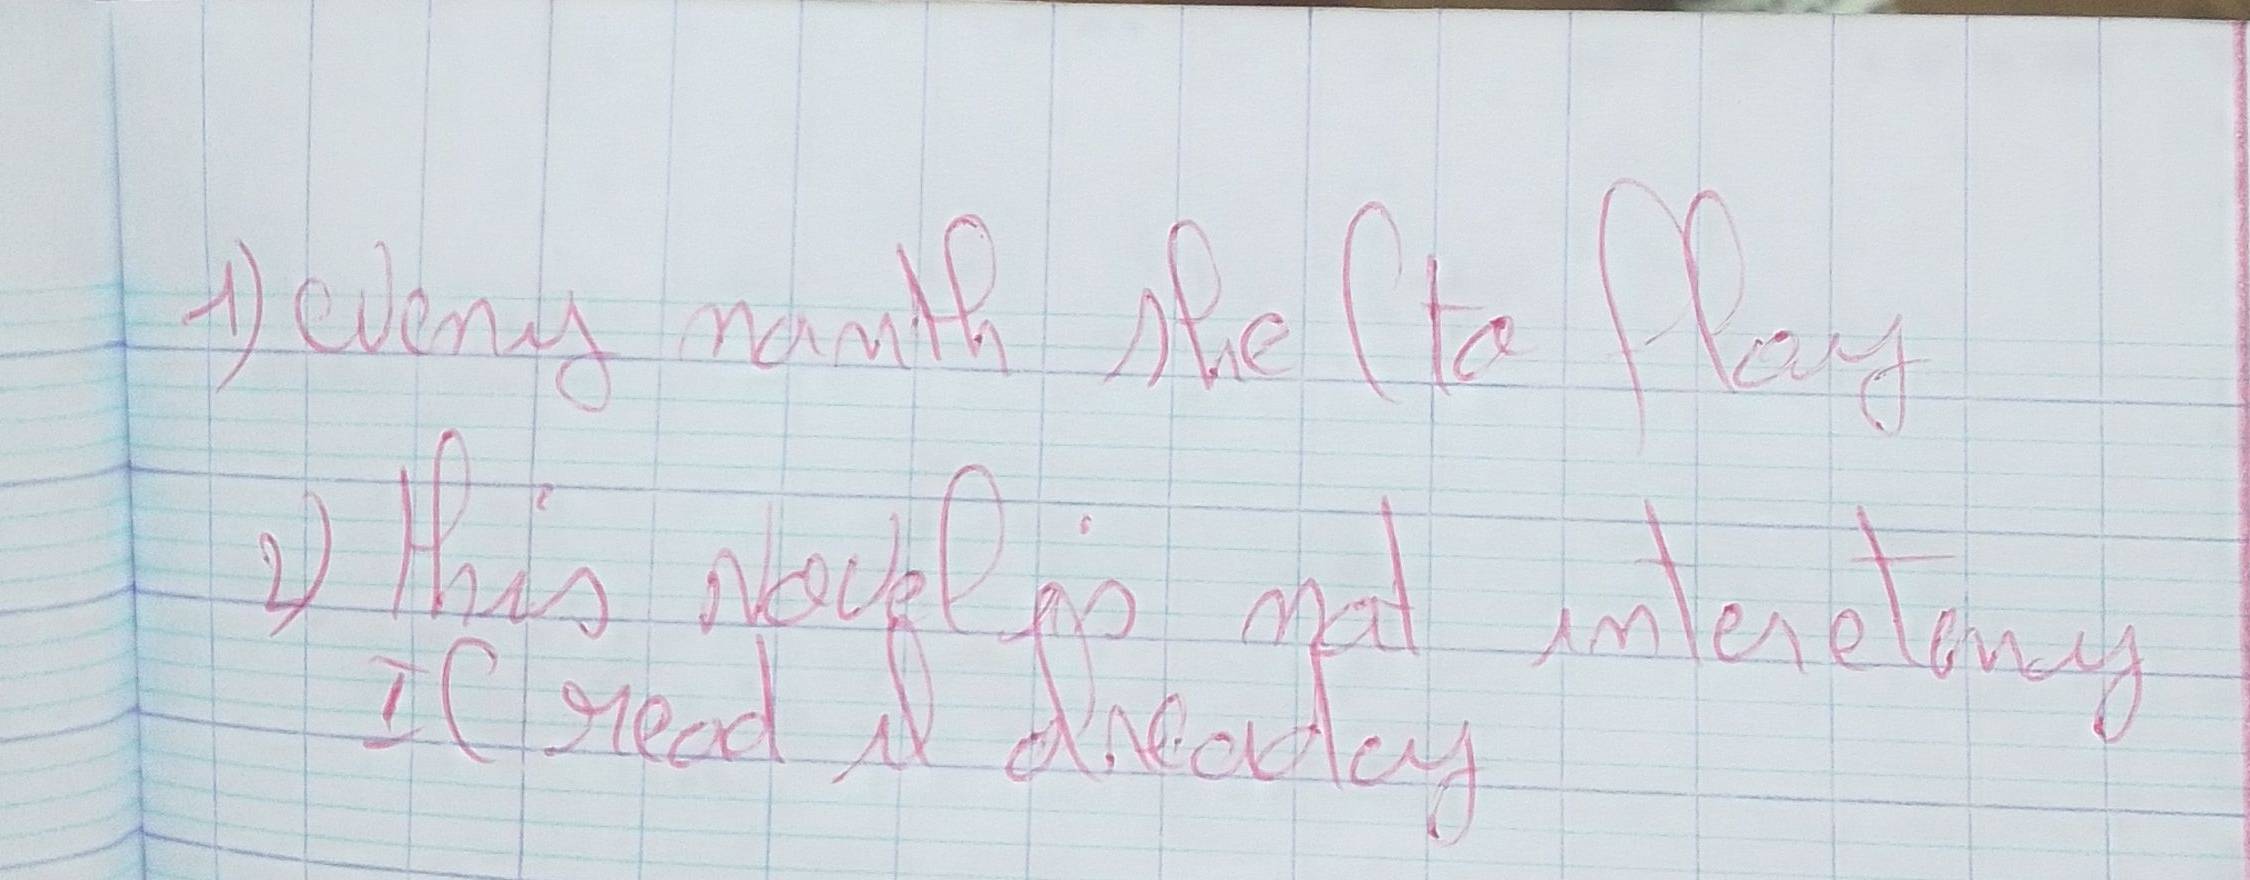 1) every month she (to play
2) this Novel is not intereteny
I ( read it dreaday